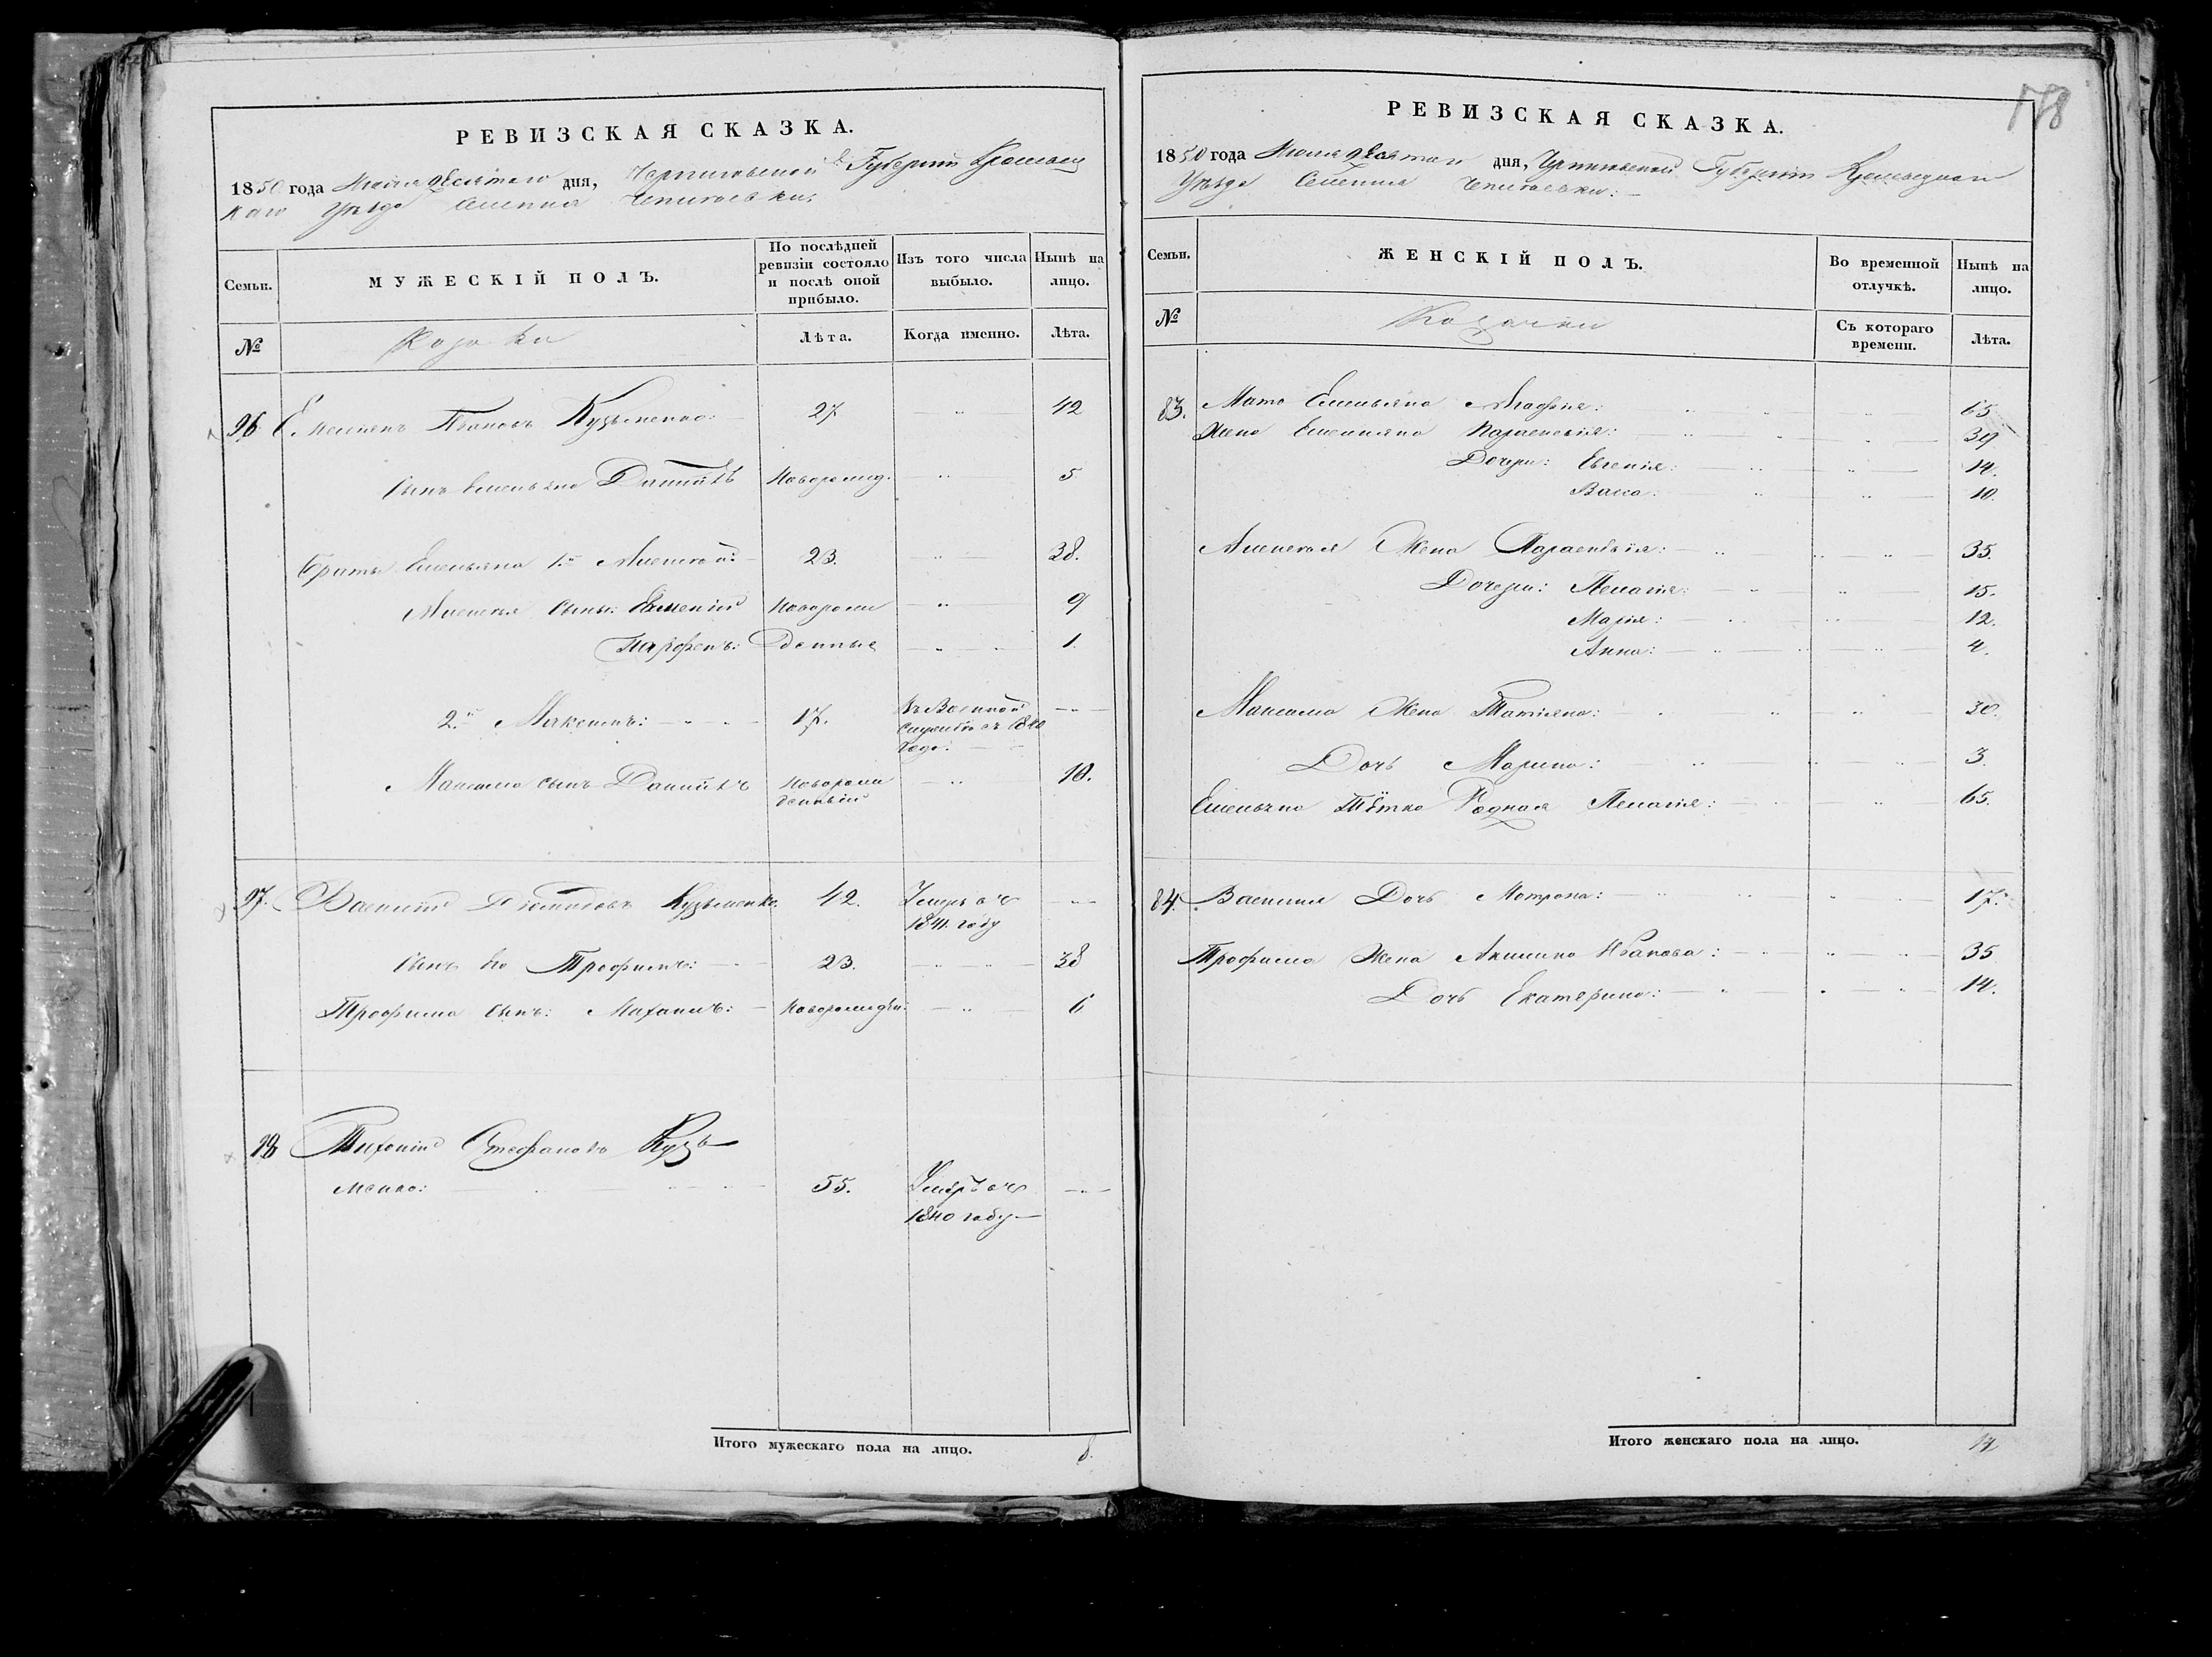 РЕВИЗСКАЯ СКАЗКА.
1850 года Июля десятаго дня, Черниговской Губернии Кролевец
каго уезда Селения Чепигоевки:
Семьи.
МУЖЕСКІЙ ПОЛЪ.
По послѣдней
ревизіи состояло
и послѣ оной
прибыло.
Изъ того числа
выбыло.
Нынѣ на
лицо.
№
Козаки
Лѣта.
Когда именно.
Лѣта.
96 Емельянъ Ивановъ Кузьменко: 27 42
Сынъ Емельяна Даніилъ Новорожд. 5
Братья Емельяна 1й Алексей: 23. 38.
Алексея сыны: Новорож 9
Парфенъ: денные 1.
2й Максимъ: 17. Въ Военной
службе съ 1840
года:
Максима сынъ Даніилъ Новорож 10.
денный
97. Василий Кузьменко. 42. Умеръ въ
1841. году
Сынъ Его Трофимъ: 23. 38
Трофима сынъ: Михаилъ: Новорожден: 6
98 Тихонъ Стефановъ Кузь
менко: 55. Умеръ въ
1840 году
Итого мужескаго пола на лицо. 8.
178
РЕВИЗСКАЯ СКАЗКА.
1850 года Июля десятаго дня, Черниговской Губернии Кролевецкаго
Уезда Селения Чепигоевки:
Семьи.
ЖЕНСКІЙ ПОЛЪ.
Во временной
отлучкѣ.
Нынѣ на
лицо.
№
Козачки
Съ котораго
времени.
Лѣта.
83. Мать Емельяна Агафия: 65
Жена Емельяна Параскевія: 39
Дочери: Евгенія: 14.
Васса: 10.
Алексея Жена Параскевія: 35.
Дочери: Пелагія: 15.
Марія: 12.
Анна: 4.
Максима Жена Татіяна: 30.
Дочь Марина: 3.
Емельяна Тётка Родная Пелагія: 65.
84. Василия Дочь Мотрона: 17.
Трофима Жена Акилина Иванова: 35
Дочь Екатерина: 14.
Итого женскаго пола на лицо. 14